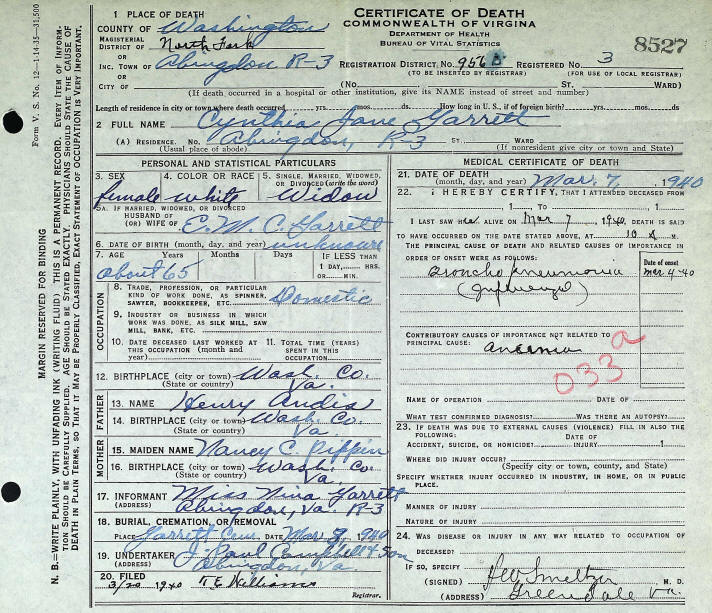 Form V. S. No. 12—1-14-35—31,500
MARGIN RESERVED FOR BINDING
N. B.—WRITE PLAINLY, WITH UNFADING INK (WRITING FLUID) THIS IS A PERMANENT RECORD. EVERY ITEM OF INFORMATION SHOULD BE CAREFULLY SUPPLIED. AGE SHOULD BE STATED EXACTLY. PHYSICIANS SHOULD STATE THE CAUSE OF DEATH IN PLAIN TERMS, SO THAT IT MAY BE PROPERLY CLASSIFIED. EXACT STATEMENT OF OCCUPATION IS VERY IMPORTANT.
1 PLACE OF DEATH
COUNTY OF Washington
MAGISTERIAL DISTRICT OF North Fork
OR
INC. TOWN OF Abingdon R-3
OR
CITY OF
CERTIFICATE OF DEATH
COMMONWEALTH OF VIRGINIA
DEPARTMENT OF HEALTH
BUREAU OF VITAL STATISTICS
8527
REGISTRATION DISTRICT NO. 956 REGISTERED NO. 3
(TO BE INSERTED BY REGISTRAR) (FOR USE OF LOCAL REGISTRAR)
(No. ST. WARD)
(If death occurred in a hospital or other institution, give its NAME instead of street and number)
Length of residence in city or town where death occurred yrs. mos. ds. How long in U. S., if of foreign birth? yrs. mos. ds
2 FULL NAME Cynthia Jane Garrett
(A) RESIDENCE. No. Abingdon, R-3 ST. WARD
(Usual place of abode) (If nonresident give city or town and State)
PERSONAL AND STATISTICAL PARTICULARS
3. SEX 4. COLOR OR RACE 5. SINGLE, MARRIED, WIDOWED, OR DIVORCED (write the word)
female white Widow
5A. IF MARRIED, WIDOWED, OR DIVORCED
HUSBAND OF
(OR) WIFE OF E. M. C. Garrett
6. DATE OF BIRTH (month, day, and year) unknown
7. AGE Years Months Days IF LESS THAN
1 DAY, HRS.
OR MIN.
about 65
OCCUPATION
8. TRADE, PROFESSION, OR PARTICULAR KIND OF WORK DONE, AS SPINNER, SAWYER, BOOKKEEPER, ETC. Domestic
9. INDUSTRY OR BUSINESS IN WHICH WORK WAS DONE, AS SILK MILL, SAW MILL, BANK, ETC.
10. DATE DECEASED LAST WORKED AT THIS OCCUPATION (month and year)
11. TOTAL TIME (YEARS) SPENT IN THIS OCCUPATION
12. BIRTHPLACE (city or town) Wash. Co.
(State or country) Va.
FATHER
13. NAME Henry Andis
14. BIRTHPLACE (city or town) Wash. Co.
(State or country) Va
MOTHER
15. MAIDEN NAME Nancy C. Pippin
16. BIRTHPLACE (city or town) Wash. Co.
(State or country) Va.
17. INFORMANT Miss Nina Garrett
(ADDRESS) Abingdon, Va. R-3
18. BURIAL, CREMATION, OR REMOVAL
PLACE Garrett Cem. DATE Mar 9, 1940
19. UNDERTAKER J. Paul Campbell & Son
(ADDRESS) Abingdon, Va.
20. FILED 3/20 1940 T E Williams
Registrar.
MEDICAL CERTIFICATE OF DEATH
21. DATE OF DEATH
(month, day, and year) Mar. 7, 1940
22. I HEREBY CERTIFY, THAT I ATTENDED DECEASED FROM
, 1 TO , 1
I LAST SAW her ALIVE ON Mar 7, 1940, DEATH IS SAID
TO HAVE OCCURRED ON THE DATE STATED ABOVE, AT 10 A M.
THE PRINCIPAL CAUSE OF DEATH AND RELATED CAUSES OF IMPORTANCE IN
ORDER OF ONSET WERE AS FOLLOWS:
Date of onset
Broncho pneumonia Mar 4-40
(Influenza)
CONTRIBUTORY CAUSES OF IMPORTANCE NOT RELATED TO
PRINCIPAL CAUSE:
anemia
033a
NAME OF OPERATION DATE OF
WHAT TEST CONFIRMED DIAGNOSIS? WAS THERE AN AUTOPSY?
23. IF DEATH WAS DUE TO EXTERNAL CAUSES (VIOLENCE) FILL IN ALSO THE
FOLLOWING: DATE OF
ACCIDENT, SUICIDE, OR HOMICIDE? INJURY 1
WHERE DID INJURY OCCUR?
(Specify city or town, county, and State)
SPECIFY WHETHER INJURY OCCURRED IN INDUSTRY, IN HOME, OR IN PUBLIC
PLACE.
MANNER OF INJURY
NATURE OF INJURY
24. WAS DISEASE OR INJURY IN ANY WAY RELATED TO OCCUPATION OF
DECEASED?
IF SO, SPECIFY
(SIGNED) Smeltzer M. D.
(ADDRESS) Greendale Va.